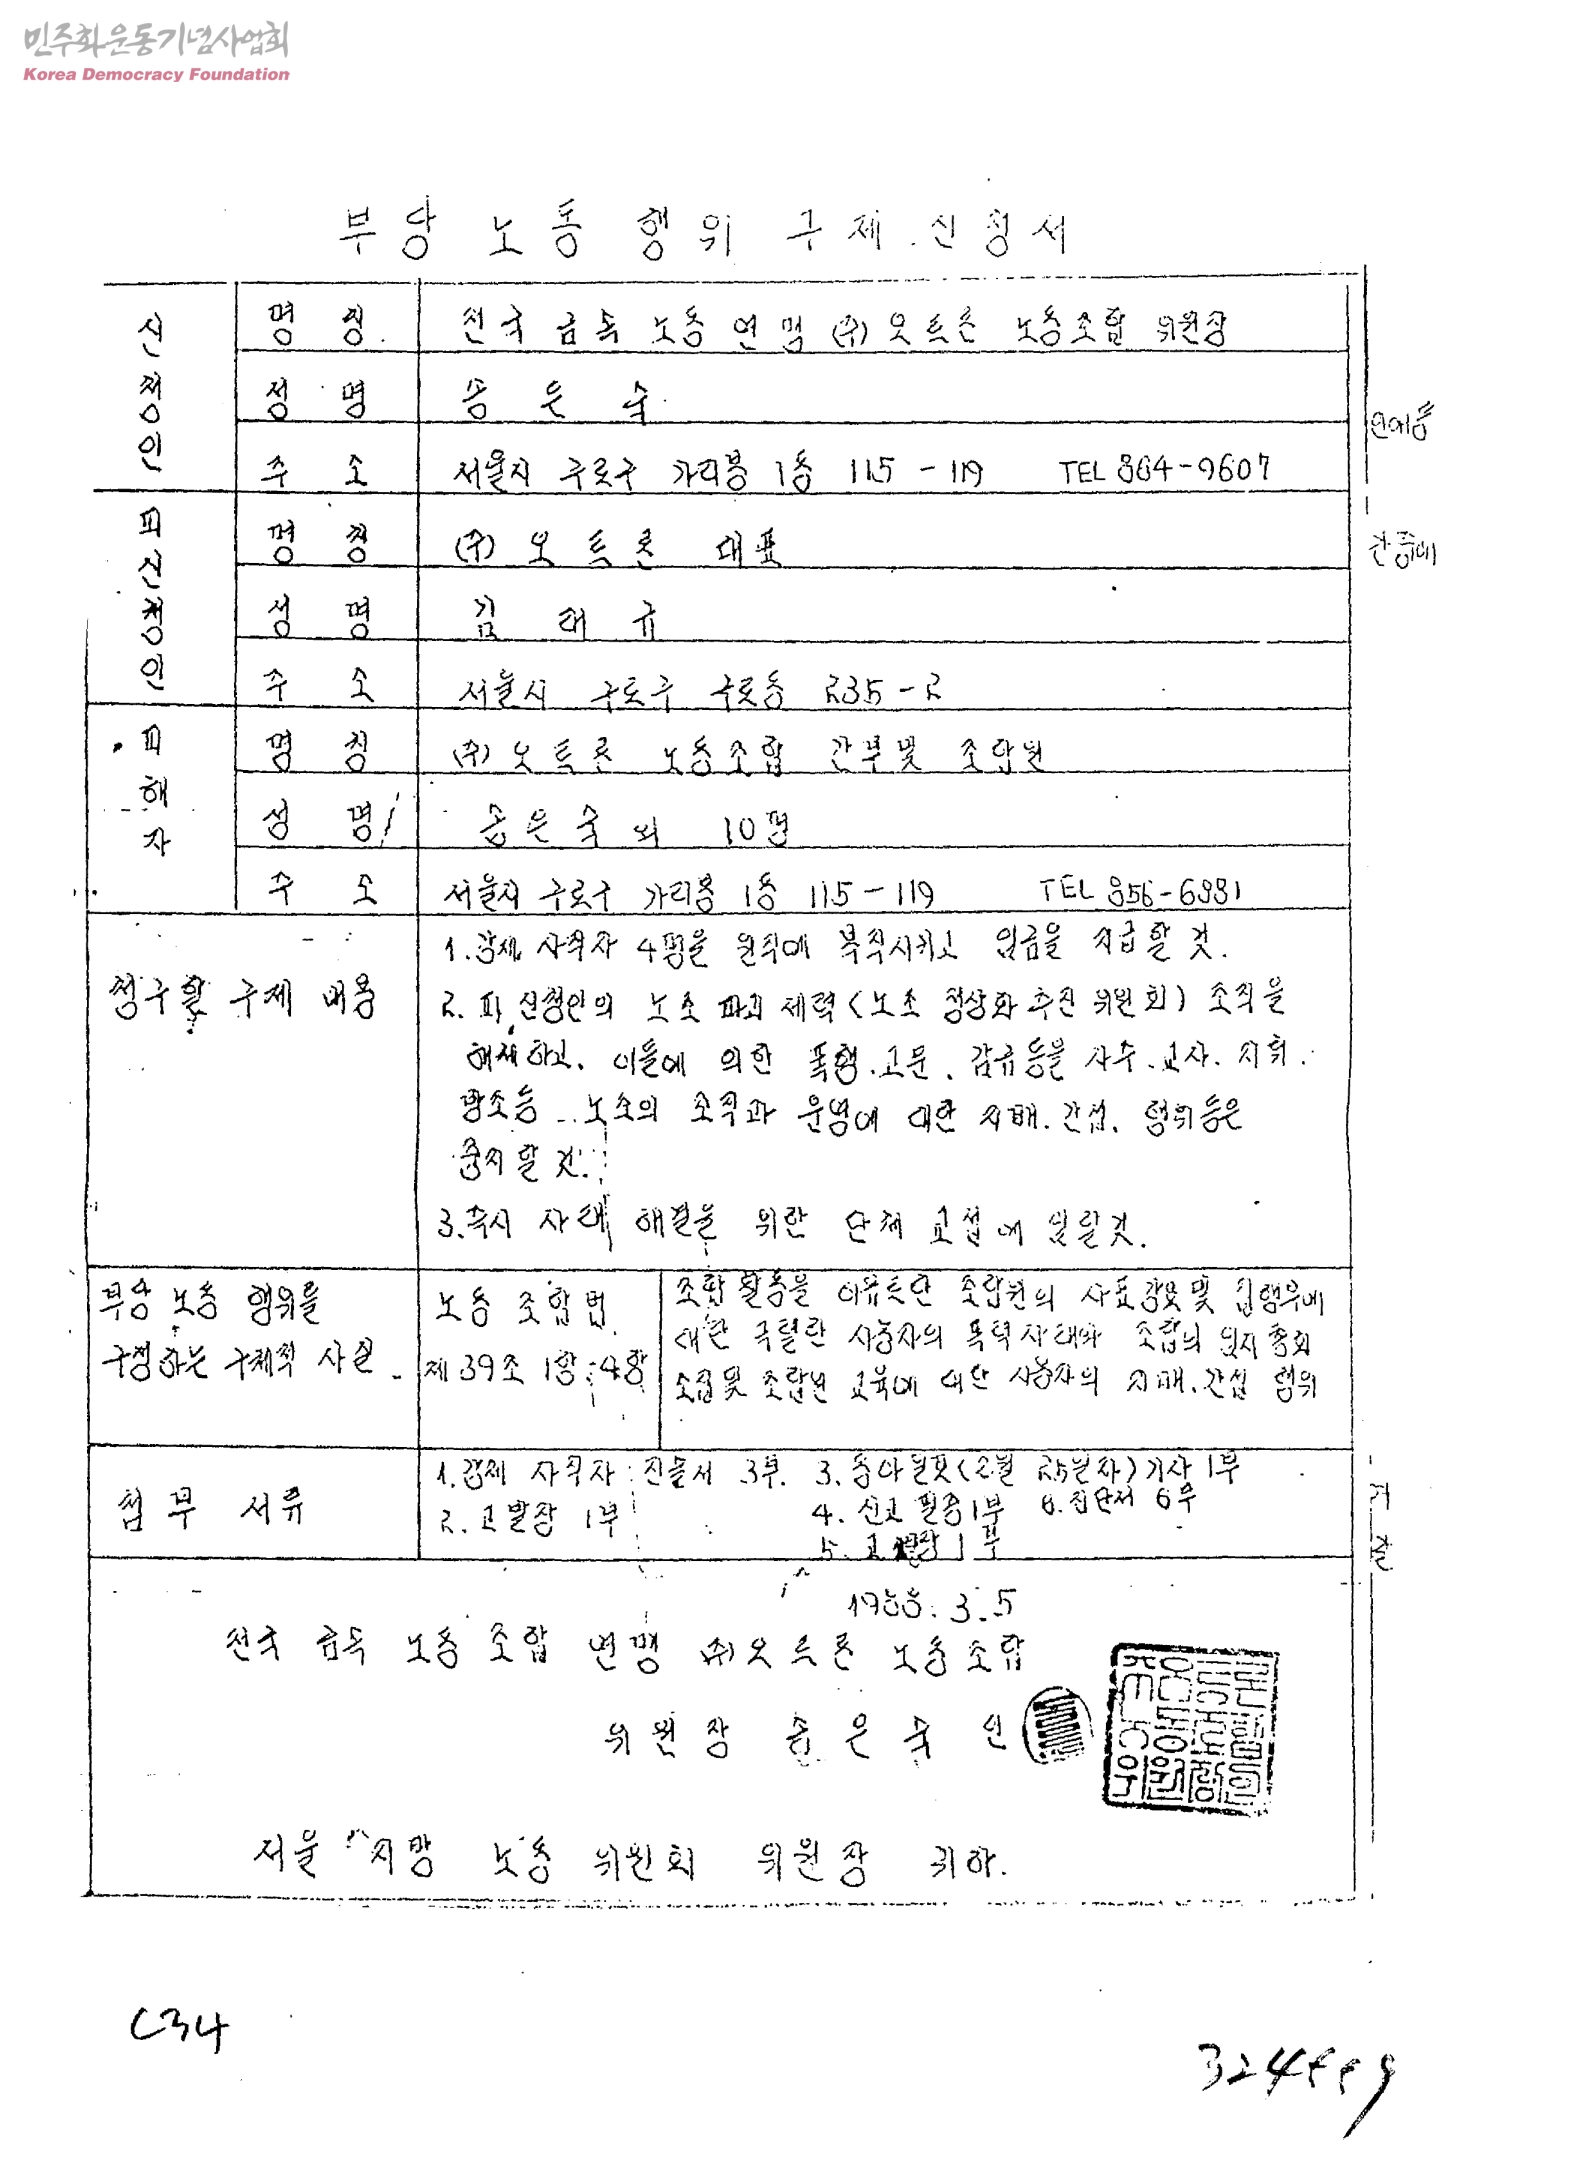 민주화운동기념사업회
Korea Democracy Foundation
부당 노동 행위 구제 신청서
신청인
명 칭 전국 금속 노동 연맹 (주) 오트론 노동조합 위원장
성 명 송 은 숙
주 소 서울시 구로구 가리봉 1동 115-119 TEL 864-9607
피신청인
명 칭 (주) 오트론 대표
성 명 김 태 규
주 소 서울시 구로구 구로동 235-2
피해자
명 칭 (주) 오트론 노동조합 간부및 조합원
성 명 송은숙 외 10명
주 소 서울시 구로구 가리봉 1동 115-119 TEL 856-6981
청구할 구제 내용
1. 강제 사직자 4명을 원직에 복직시키고 임금을 지급할 것.
2. 피 신청인의 노조 파괴 세력 (노조 정상화 추진 위원회) 조직을
해체하고, 이들에 의한 폭행.고문.감금등을 사수.교사.지휘.
방조등 노조의 조직과 운영에 대한 지배.간섭. 행위등은
중지 할 것.
3. 즉시 사태 해결을 위한 단체 교섭에 임할것.
부당 노동 행위를
구성하는 구체적 사실
노동 조합법
제 39조 1항.4항
조합 활동을 이유로한 조합원의 사표강요및 집행부에
대한 극렬한 사용자의 폭력사태와 조합의 임시총회
소집및 조합원 교육에 대한 사용자의 지배.간섭 행위
첨 부 서 류
1. 강제 사직자 진술서 3부. 3. 동아일보(2월 25일자)기사 1부
2. 고발장 1부 4. 신고 필증1부 6. 진단서 6부
5. 고 장 1부
1988. 3. 5
전국 금속 노동 조합 연맹 (주) 오트론 노동조합
위원장 송 은 숙 인
서울 지방 노동 위원회 위원장 귀하.
C34